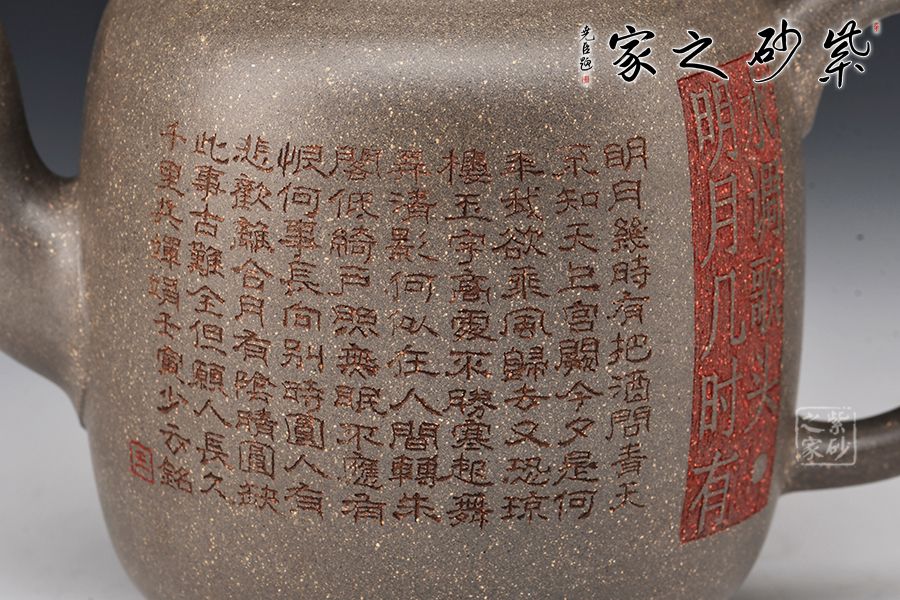 紫砂之家
尧臣题
水调歌头·
明月几时有
明月幾時有把酒問青天
不知天上宮闕今夕是何
年我欲乘風歸去又恐琼
樓玉宇高處不勝寒起舞
弄清影何似在人間轉朱
閣低綺戶照無眠不應有
恨何事長向別時圓人有
悲歡離合月有陰晴圓缺
此事古難全但願人長久
千里共嬋娟壬寅少亦銘
紫砂之家